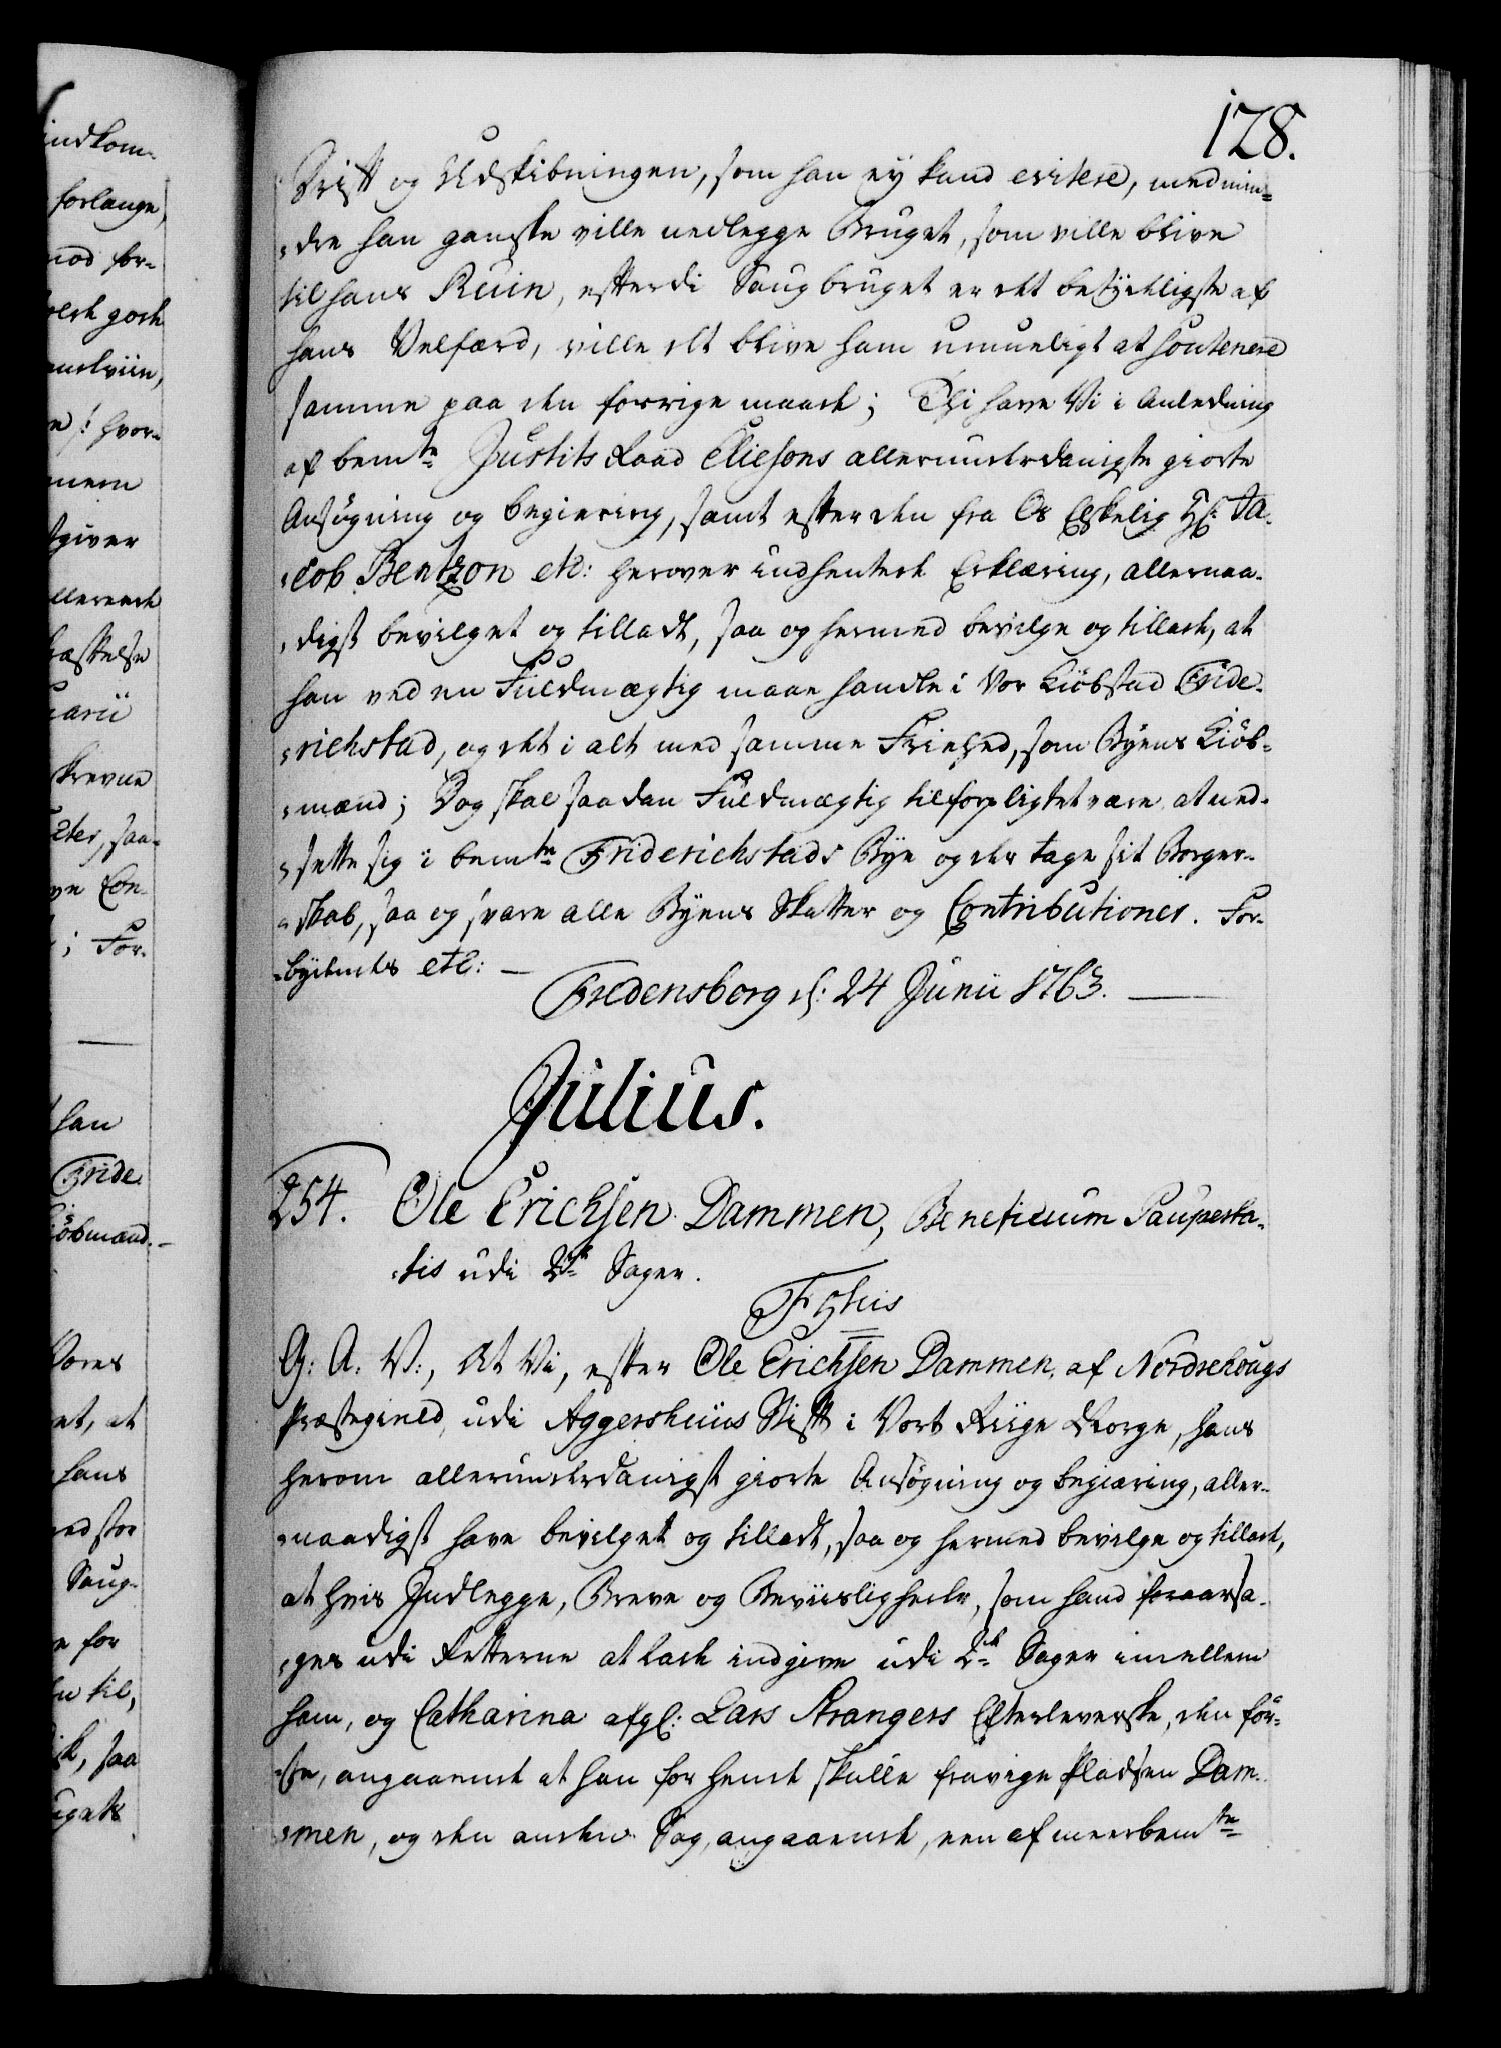 128.
Drift og Udskibningen, som han ey kand evitere, medmin-
-dre han ganske ville nedlegge Bruget, som ville blive
til hans Ruin, efterdi Saugbruget er det betydeligste af
hans Velfærd, ville det blive ham umueligt at soutenere
samme paa den forrige maade; Thi have Vi i Anledning
af bemte Justits Raad Eliesons allerunderdanigste giorte
Ansøgning og begiering, samt efter den fra Os Elskelig Hr: Ja-
-cob Bentzon etc: herover indhentede Erklæring, allernaa-
-digst bevilget og tilladt, saa og hermed bevilge og tillade, at
han ved en Fuldmægtig maae handle i Vor Kiöbstad Fride-
-richstad, og det i alt med samme Friehed, som Byens Kiöb-
-mænd; Dog skal saadan Fuldmægtig tilforpligtet være, at ned-
-sette sig i bemte Friderichstads Bye og der tage sit Borger-
-skab, saa og svare alle Byens Skatter og Contributioner. For-
-bydendes etc: —
Fredensborg d: 24 Junii 1763.
Julius.
254. Ole Erichsen Dammen, Beneficium Pauperta-
-tis udi 2de Sager.
G: A: V:, At Vi, efter Ole Erichsen Dammen, af Nordrehougs
Præstegield, udi Aggershuus Stift i Vort Riige Norge, hans
herom allerunderdanigst giorte Ansøgning og begiæring, aller-
-naadigst have bevilget og tilladt, saa og hermed bevilge og tillade,
at hvis Indlegge, Breve og Beviisligheder, som hand foraarsa-
-ges udi Retterne at lade indgive udi 2de Sager imellem
ham, og Catharina afgl: Lars Strangers Efterleverske, den för-
-ste, angaaende at han for hende skulle fravige Pladsen Dam-
-men, og den anden Sag, angaaende, een af meerbemte
indkom-
forlange,
mod for-
hvor-
giver
hæftelse
skrevne
saa-
Con-
For-
han
Fride-
Kiöbmænd. -
Vores
at
hans
Saug-
for
til,
saa